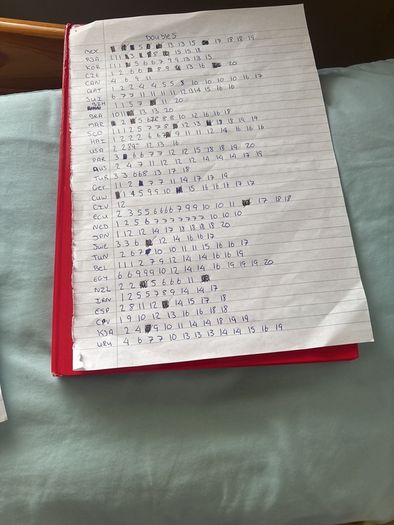 DOUBLES
MEX 5 13 13 15 17 18 18 19
RSA 1 1 1 3 8 15 15 18
KOR 1 1 1 5 5 6 6 7 9 9 13 13 15
CZE 1 2 6 6 8 9 13 16 20
CAN 4 6 9 11
QAT 1 2 2 4 4 5 5 8 10 10 10 10 16 17
SUI 6 7 7 11 11 11 11 12 13 14 15 16 16
1 1 5 7 11 20
BRA 10 11 13 13 20
MAR 2 5 6 8 8 10 12 16 16 18
SCO 1 1 1 2 5 7 7 8 12 13 18 18 19 19
HAI 1 2 2 2 6 6 9 11 11 12 14 16 16 16
USA 2 2 8 9 12 13 16
PAR 3 6 6 7 7 12 12 15 18 18 19 20
AUS 2 4 7 11 12 12 12 14 14 14 17 19
TUR 3 3 6 6 8 13 17 18
GER 1 1 2 7 7 11 14 17 17 19
CUW 1 4 5 9 9 10 15 16 16 16 17 17
CIV 12
ECU 2 3 5 5 6 6 6 6 7 9 9 10 10 11 17 18 18
NED 1 2 5 6 7 7 7 7 7 7 7 10 10 10
JPN 1 12 12 14 17 17 18 18 18 20
SWE 3 3 6 12 14 16 16 17
TUN 2 6 7 10 10 11 11 15 16 16 17
BEL 1 1 1 2 7 9 12 14 14 16 16 19
EGY 6 6 9 9 9 10 12 14 14 16 19 19 19 20
NZL 2 2 5 6 6 6 11
IRN 1 2 5 5 7 8 9 14 14 17
ESP 2 8 11 12 14 15 17 18
CPV 1 9 10 12 13 16 16 18 18
KSA 2 4 9 10 11 14 14 18 19 19
URU 4 6 7 7 10 13 13 13 14 14 15 16 19